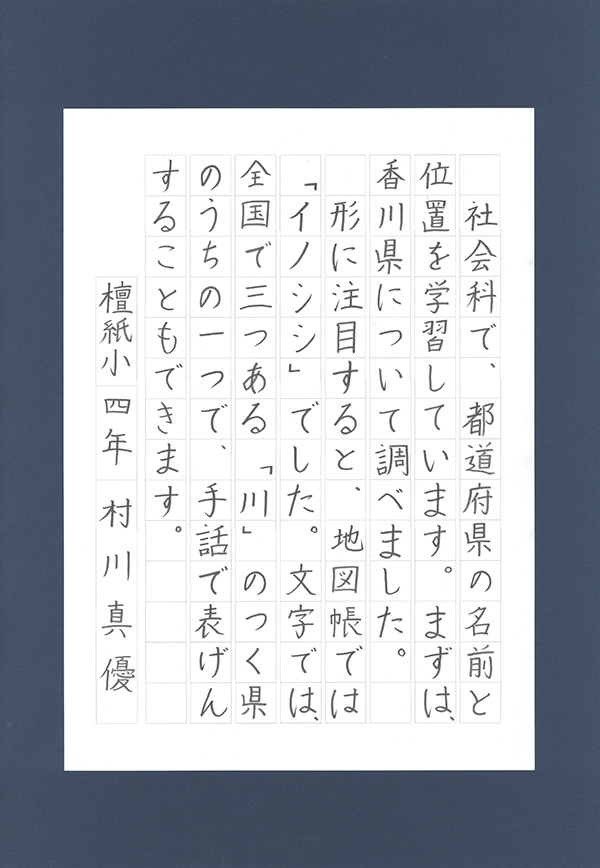 社会科で、都道府県の名前と
位置を学習しています。まずは、
香川県について調べました。
形に注目すると、地図帳では
「イノシシ」でした。文字では、
全国で三つある「川」のつく県
のうちの一つで、手話で表げん
することもできます。
檀紙小 四年 村川真優